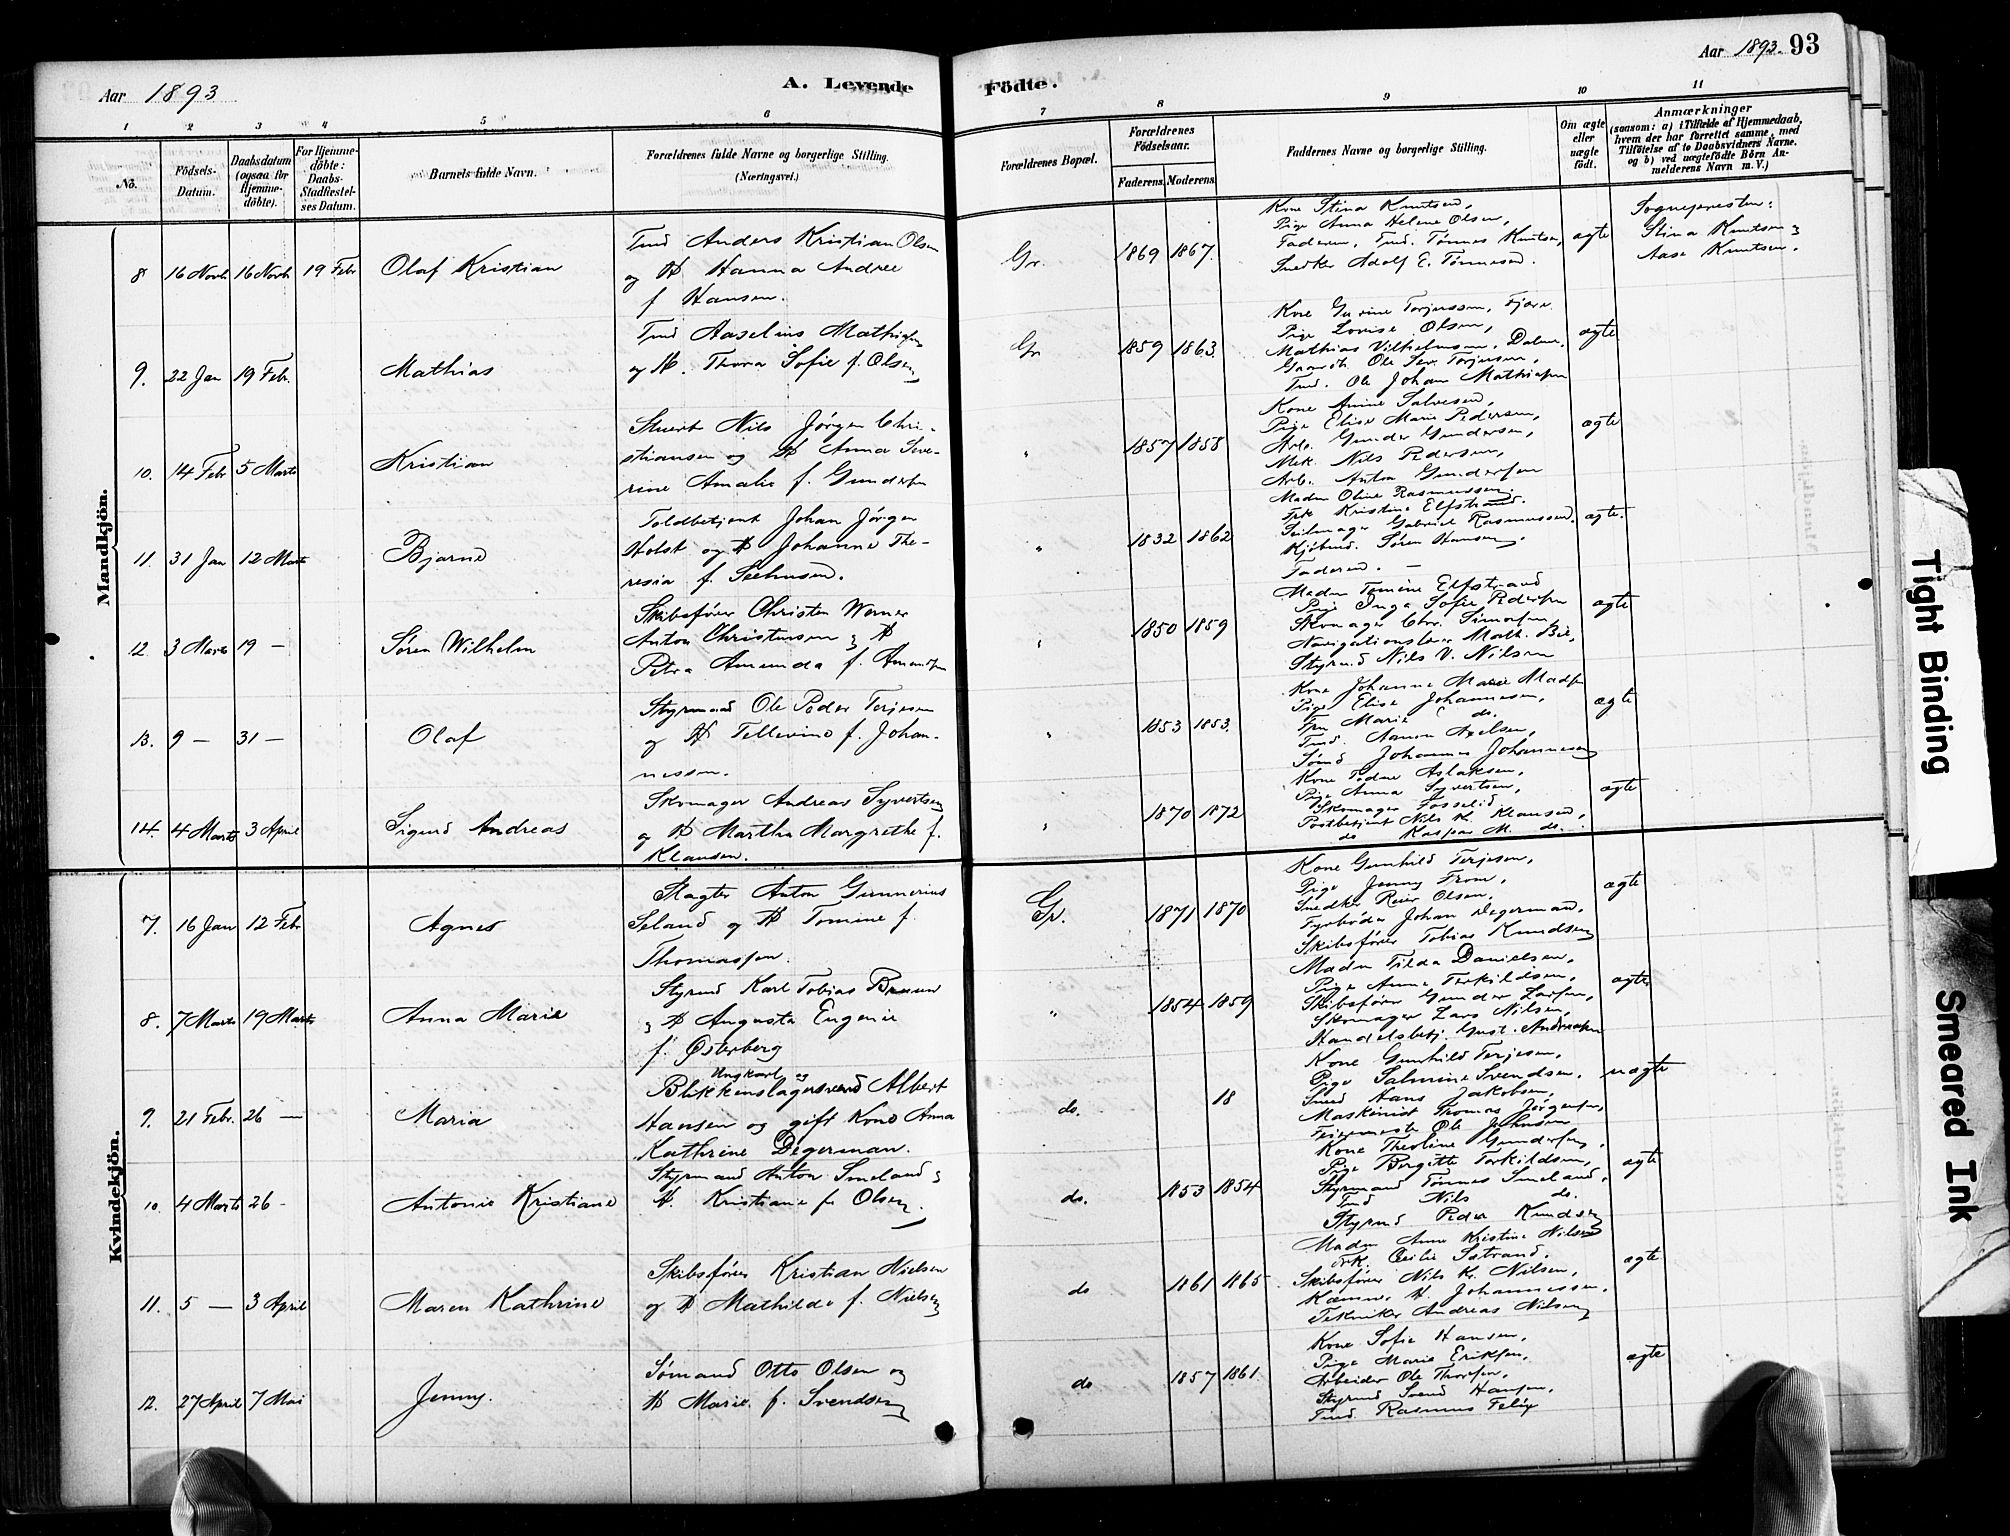 Aar 1893
A. Levende
Födte.
Aar 1893. 93
1 2 3 4 5 6 7 8 9 10 11
No.
Födsels-Datum.
Daabsdatum (ogsaa for Hjemmedöbte).
For Hjemmedöbte: Daabs-Stadfæstelses Datum.
Barnets fulde Navn.
Forældrenes fulde Navne og borgerlige Stilling.
(Næringsvei.)
Forældrenes Bopæl.
Forældrenes Födselsaar.
Faderens. Moderens.
Faddernes Navne og borgerlige Stilling.
Om ægte eller uægte født.
Anmærkninger
(saasom: a) i Tilfælde af Hjemmedaab, hvem der har forrettet samme, med Tilföielse af to Daabsvidners Navne, og b) ved uægtefödte Börn Anmelderens Navn m. V.)
Mandkjön.
8 16 Novb 16 Novb 19 Febr Olaf Kristian
Tmd Anders Kristian Olsen
og H Hanna Andree
f Hansen.
Gr. 1869 1867.
Kone Stina Knutsen,
Pige Anna Helene Olsen,
Faderen, Tmd. Tønnes Knutsen,
Snedker Adolf E. Tønnesen.
ægte
Sognepresten:
Stina Knutsen og
Aase Knutsen.
9. 22 Jan 19 Febr. Mathias
Tmd Aaselius Mathisen
og H. Thora Sofie f. Olsen
Gr 1859 1863.
Kone Gurine Torjussen, Fjære
Pige Lovise Olsen,
Mathias Vilhelmsen, Dalen.
Gaardb. Ole Sev. Torjusen,
Tmd. Ole Johan Mathisen
ægte
10. 14 Febr 5 Marts Kristian
Stuert Nils Jørgen Chri-
stiansen og H Anna Seve-
rine Amalie f. Gundersen
" 1857 1858
Kone Anine Salvesen,
Pige Elise Marie Pedersen,
Arb. Gunder Gundersen,
Mek. Nils Pedersen,
Arb. Anton Gundersen
ægte
11. 31 Jan 12 Marts Bjarne
Toldbetjent Johan Jørgen
Holst og H Johanne The-
resia f. Seehusen.
" 1832 1862
Madm Oline Rasmussen.
Frk Kristine Elfstrand.
Seilmager Gabriel Rasmussen.
Kjøbmd. Søren Hansen.
Faderen. —
ægte.
12. 3 Marts 19 — Søren Wilhelm
Skibsfører Christen Werner
Anton Christensen og H
Petra Amunda f. Amundsen
" 1850 1859
Madm Tomine Elfstrand
Pige Inga Sofie Pedersen
Skomager Chr. Simonsen,
Navigationslærer Math. Bie,
Styrmd Nils V. Nilsen
ægte
13. 9 — 31 — Olaf
Styrmand Ole Peder Terjesen
og H Tellevine f. Johan-
nessen.
" 1853 1853.
Kone Johanne Marie Madsen
Pige Elise Johannesen,
Frk Marie do.
Tmd. Aanon Axelsen,
Sømd Johannes Johannesen
ægte
14. 4 Marts 3 April Sigurd Andreas
Skomager Andreas Syvertsen
og H Martha Margrethe f.
Klausen.
" 1870 1872
Kone Tedne Aslaksen,
Pige Anna Syvertsen,
Skomager Fosselid
Postbetjent Nils K. Klausen,
do Kaspar M. do.
ægte
Kvindekjön.
7. 16 Jan 12 Febr Agnes
Slagter Anton Gunnerius
Seland og H Tomine f.
Thomassen.
Gr. 1871 1870
Kone Gunhild Terjesen,
Pige Jenny From,
Snedker Reier Olsen,
Fyrbøder Johan Degerman,
Skibsfører Tobias Knudsen
ægte
8. 7 Marts 19 Marts Anna Marie
Styrmd Karl Tobias Bruun
og H Augusta Eugenie
f. Østerberg
" 1854 1859
Madm Tilda Danielsen,
Pige Anna Terkildsen,
Skibsfører Gunder Larsen,
Skomager Lars Nilsen,
Handelsbetj. Gust. Andreasen
ægte
9. 21 Febr. 26 — Maria
Ungkarl og
Blikkenslagersvend Albert
Hansen og gift Kone Anna
Kathrine Degerman.
do. 18
Kone Gunhild Terjesen,
Pige Salmine Svendsen.
Smed Hans Jakobsen,
Maskinist Thomas Jørgensen,
Feiermester Ole Johnsen
uægte
10. 4 Marts 26 - Antonie Kristiane
Styrmand Anton Smeland og
H. Kristiane f. Olsen.
do. 1853 1854
Kone Theoline Gundersen,
Pige Bergitte Terkildsen,
Styrmand Tønnes Smeland,
Tmd Nils do.
Styrmd Peder Knudsen
ægte
11. 5 — 3 April Maren Kathrine
Skibsfører Kristian Nielsen
og H Mathilde f. Nielsen
do 1861 1865
Madm Anne Kristine Nilsen
Frk. Cecilie Sætrand.
Skibsfører Nils Kr. Nilsen,
Kæmner H Johannessen.
Tekniker Andreas Nilsen
ægte
12. 27 April 7 Mai Jenny.
Sømand Otto Olsen og
H Marie f. Svendsen
do 1857 1861.
Kone Sofie Hansen,
Pige Marie Eriksen,
Arbeider Ole Thorsen,
Styrmd Svend Hansen,
Tmd. Rasmus Felix
ægte
Tight Binding
Smeared Ink